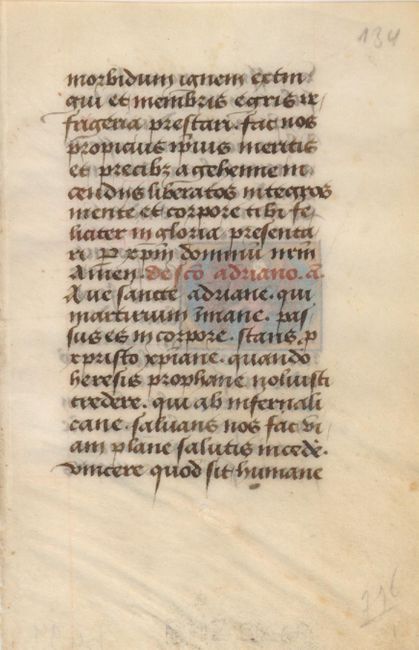 134
morbidum ignem extin
gui et membris egris re
frigeria prestari. fac nos
propicius ip̄ius meritis
et precibꝫ a gehenne in
cendiis liberatos integros
mente et corpore tibi fe
liciter in gloria presenta
ri. ꝑ xp̄m dominū nr̄m
Amen. de sc̄o adriano. a.
Aue sancte adriane. qui
martirium īmane. pas
sus es in corpore. stans ꝓ
xpristo xp̄iane. quando
heresis prophane noluisti
credere. qui ab infernali
cane. saluans nos fac vi
am plane salutis incedē.
vincere quod sit humane